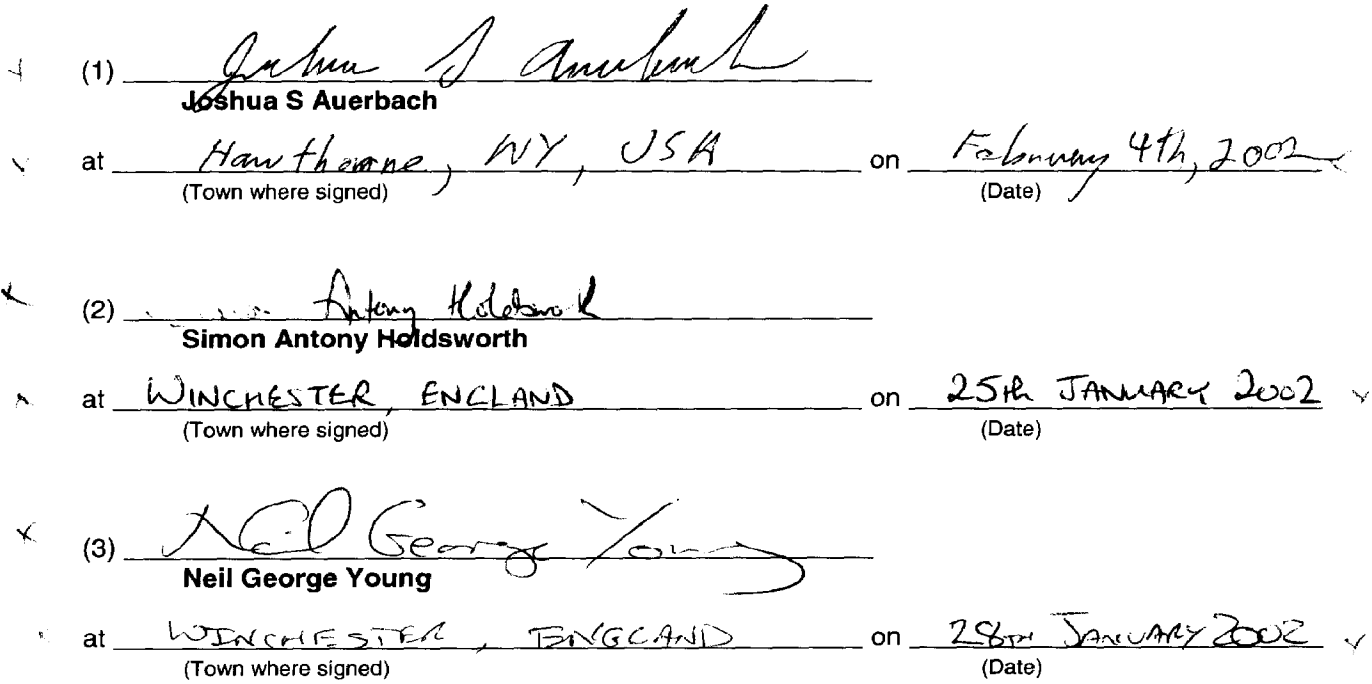 (1) Joshua S Auerbach
Joshua S Auerbach
at Hawthorne, NY, USA on February 4th, 2002
(Town where signed) (Date)
(2) Antony Holdsworth
Simon Antony Holdsworth
at WINCHESTER, ENGLAND on 25th JANUARY 2002
(Town where signed) (Date)
(3) Neil George Young
Neil George Young
at WINCHESTER, ENGLAND on 28TH JANUARY 2002
(Town where signed) (Date)